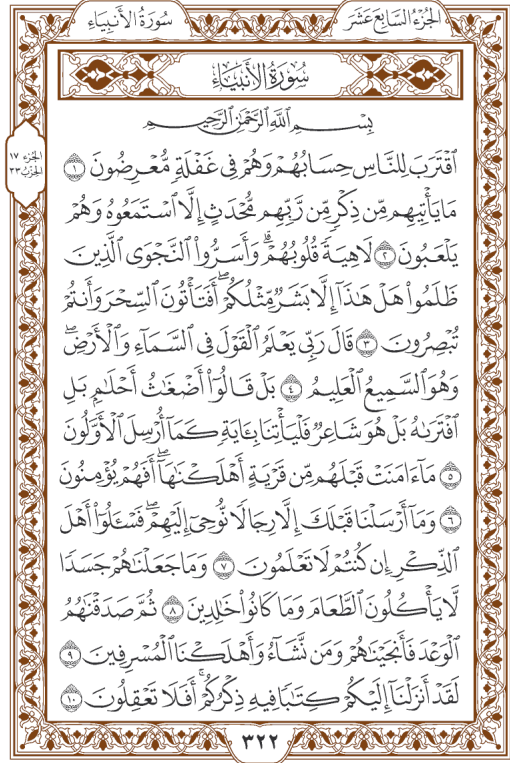 الجُزْءُ السَّابِعَ عَشَرَ
سُورَةُ الأَنبِيَاءِ
الجزء ١٧
الحزب ٣٣
سُورَةُ الأَنبِيَاءِ
بِسْمِ ٱللَّهِ ٱلرَّحْمَٰنِ ٱلرَّحِيمِ
ٱقْتَرَبَ لِلنَّاسِ حِسَابُهُمْ وَهُمْ فِي غَفْلَةٍ مُّعْرِضُونَ ١
مَا يَأْتِيهِم مِّن ذِكْرٍ مِّن رَّبِّهِم مُّحْدَثٍ إِلَّا ٱسْتَمَعُوهُ وَهُمْ
يَلْعَبُونَ ٢ لَاهِيَةً قُلُوبُهُمْۗ وَأَسَرُّوا۟ ٱلنَّجْوَى ٱلَّذِينَ
ظَلَمُوا۟ هَلْ هَٰذَآ إِلَّا بَشَرٌ مِّثْلُكُمْۖ أَفَتَأْتُونَ ٱلسِّحْرَ وَأَنتُمْ
تُبْصِرُونَ ٣ قَالَ رَبِّي يَعْلَمُ ٱلْقَوْلَ فِي ٱلسَّمَآءِ وَٱلْأَرْضِۖ
وَهُوَ ٱلسَّمِيعُ ٱلْعَلِيمُ ٤ بَلْ قَالُوٓا۟ أَضْغَٰثُ أَحْلَٰمٍ بَلِ
ٱفْتَرَىٰهُ بَلْ هُوَ شَاعِرٌ فَلْيَأْتِنَا بِـَٔايَةٍ كَمَآ أُرْسِلَ ٱلْأَوَّلُونَ
٥ مَآ ءَامَنَتْ قَبْلَهُم مِّن قَرْيَةٍ أَهْلَكْنَٰهَآۖ أَفَهُمْ يُؤْمِنُونَ
٦ وَمَآ أَرْسَلْنَا قَبْلَكَ إِلَّا رِجَالًا نُّوحِيٓ إِلَيْهِمْۖ فَسْـَٔلُوٓا۟ أَهْلَ
ٱلذِّكْرِ إِن كُنتُمْ لَا تَعْلَمُونَ ٧ وَمَا جَعَلْنَٰهُمْ جَسَدًا
لَّا يَأْكُلُونَ ٱلطَّعَامَ وَمَا كَانُوا۟ خَٰلِدِينَ ٨ ثُمَّ صَدَقْنَٰهُمُ
ٱلْوَعْدَ فَأَنجَيْنَٰهُمْ وَمَن نَّشَآءُ وَأَهْلَكْنَا ٱلْمُسْرِفِينَ ٩
لَقَدْ أَنزَلْنَآ إِلَيْكُمْ كِتَٰبًا فِيهِ ذِكْرُكُمْۚ أَفَلَا تَعْقِلُونَ ١٠
٣٢٢